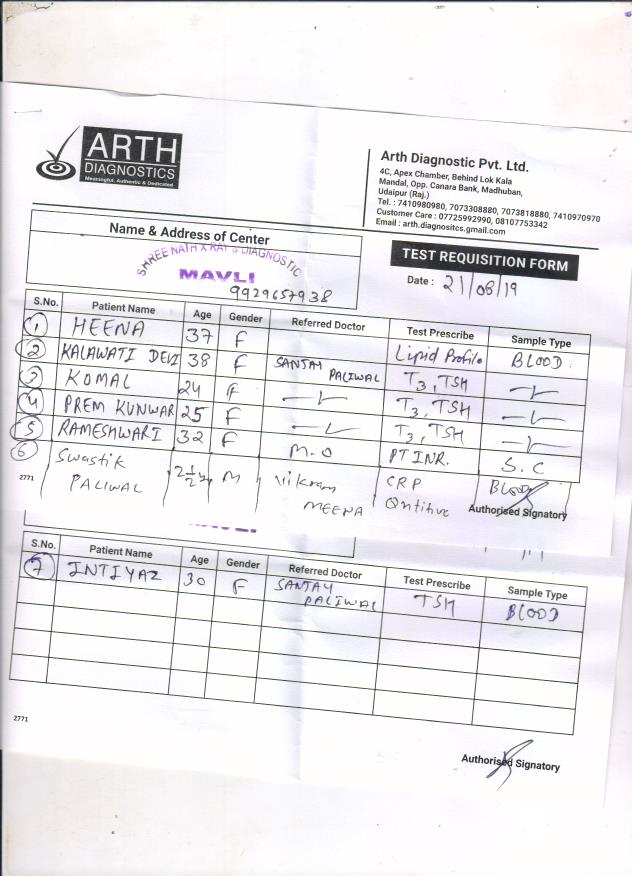 ARTH
DIAGNOSTICS
Meaningful, Authentic & Dedicated.
Arth Diagnostic Pvt. Ltd.
4C, Apex Chamber, Behind Lok Kala
Mandal, Opp. Canara Bank, Madhuban,
Udaipur (Raj.)
Tel. : 7410980980, 7073308880, 7073818880, 7410970970
Customer Care : 07725992990, 08107753342
Email : arth.diagnositcs.gmail.com
Name & Address of Center
SHREE NATH X RAY & DIAGNOSTIC
MAVLI
9929657938
TEST REQUISITION FORM
Date : 21/08/19
S.No. Patient Name Age Gender Referred Doctor Test Prescribe Sample Type
1 HEENA 37 F Lipid Profile BLOOD
2 KALAWATI DEVI 38 F SANJAY PALIWAL T3, TSH
3 KOMAL 24 F T3, TSH
4 PREM KUNWAR 25 F T3, TSH
5 RAMESHWARI 32 F M.O PT INR. S.C
6 Swastik PALIWAL 2 1/2 y M Vikram MEENA CRP Qntitive BLOOD
2771
Authorised Signatory
MAVLI
S.No. Patient Name Age Gender Referred Doctor Test Prescribe Sample Type
7 INTIYAZ 30 F SANJAY PALIWAL TSH BLOOD
2771
Authorised Signatory